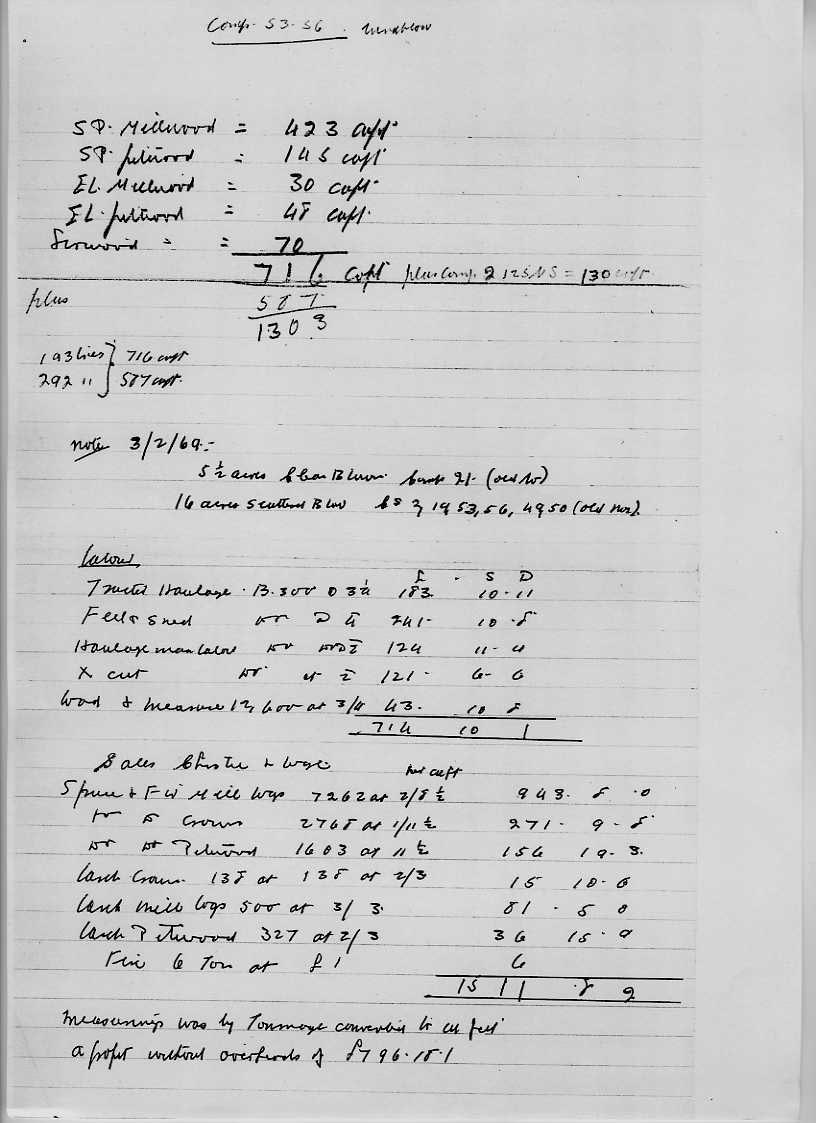 Comp. 53-56. Windblow
SP. Millwood = 423 cuft
SP. pitwood = 145 cuft
EL. Millwood = 30 cuft
EL. pitwood = 48 cuft.
Firewood = = 70
716 cuft plus Comp. 2 = 130 cuft
plus 587
1303
193 trees } 716 cuft
292 " } 587 cuft.
note 3/2/69:-
5½ acres Clear Blown 21- (old No)
16 acres Scattered Blow 1953, 56, 4950 (old nos).
Labour
£ . S D
Tractor Haulage. 183. 10 - 11
Fell & Sned 241- 10 . 8
Haulage man labour 124 11 - 4
X cut 121 - 6 - 6
load & measure 12,600 at 3/4 43. 10 8
714 10 1
Sales
per cuft
Spruce & F.W. Mill logs 7262 at 2/8½ 943. 8 . 0
Crowns 2768 at 1/11½ 271 - 9 - 8
Pitwood 1603 at 11½ 156 19 - 3.
Larch Crowns 138 at 138 at 2/3 15 10 - 6
Larch Mill logs 500 at 3/3. 81 . 5 0
Larch Pitwood 327 at 2/3 36 15 . 9
Fire 6 Ton at £1 6
1511 . 8 9
Measurings was by Tonnage converted to cu feet
a profit without overheads of £796.18.1